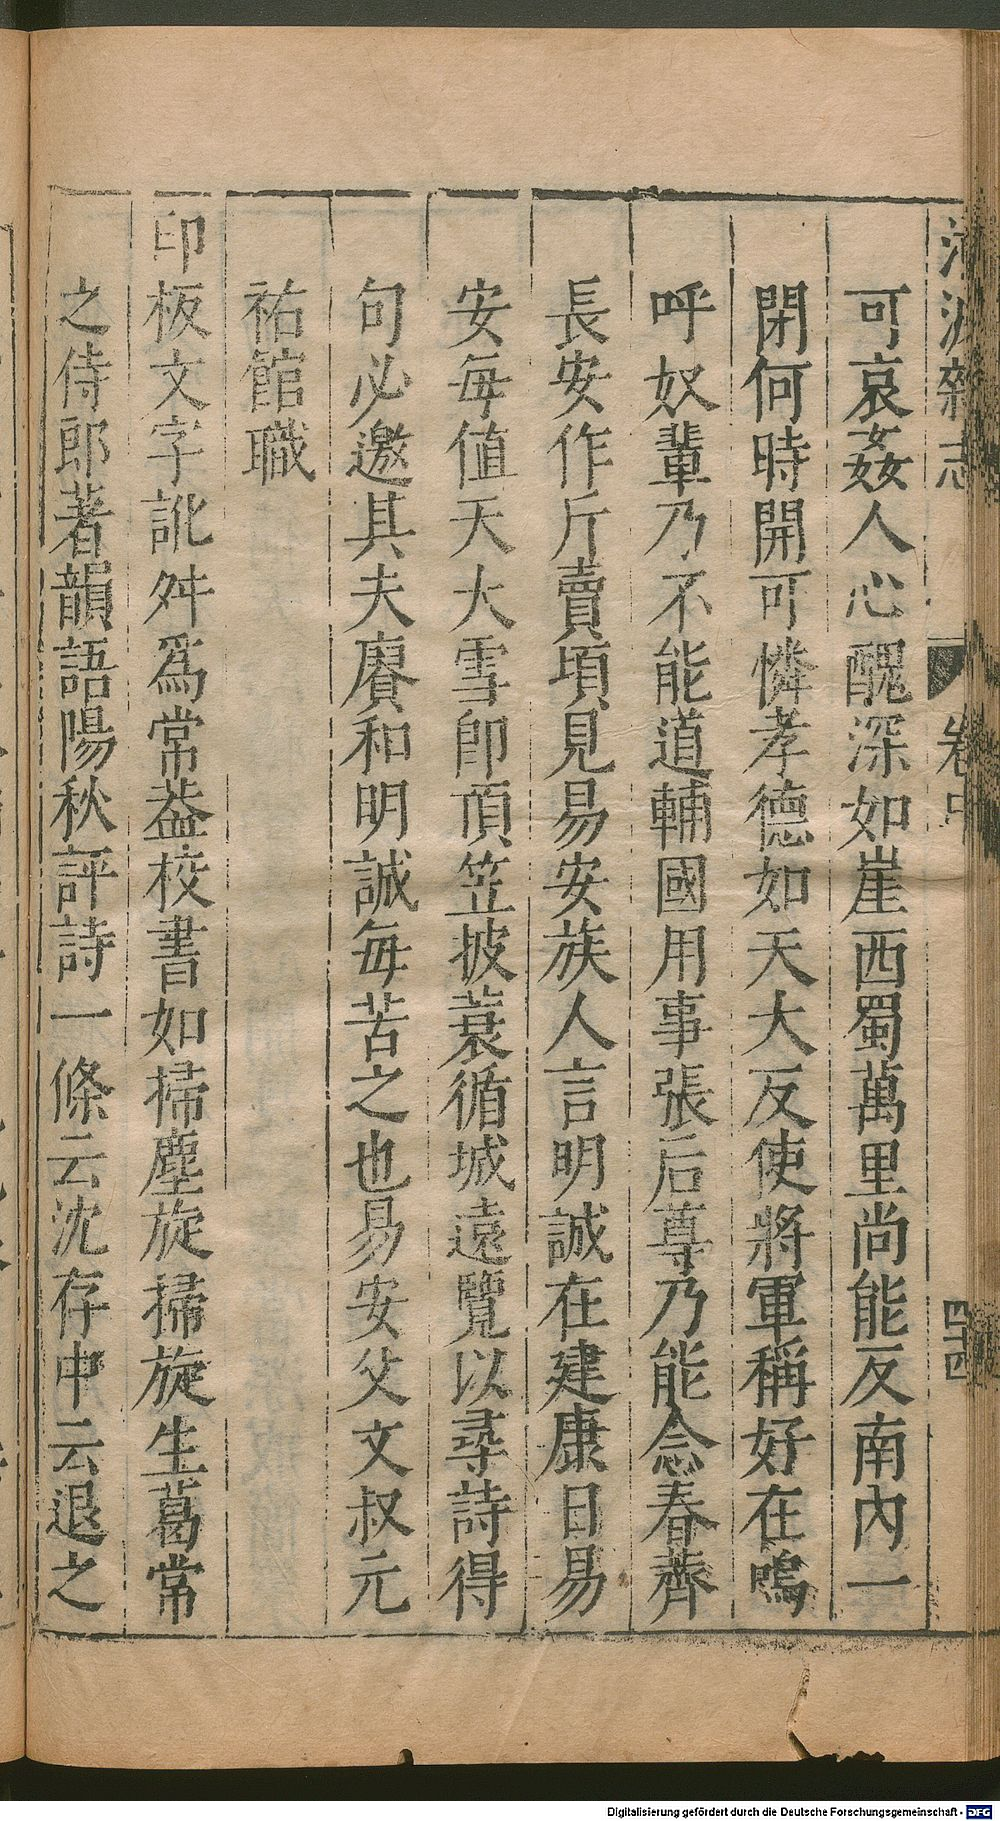 清波雜志 卷中 四十四
可哀姦人心醜深如崖西蜀萬里尚能反南內一
閉何時開可憐孝德如天大反使將軍稱好在嗚
呼奴輩乃不能道輔國用事張后尊乃能念春薺
長安作斤賣頃見易安族人言明誠在建康日易
安每值天大雪即頂笠披蓑循城遠覽以尋詩得
句必邀其夫賡和明誠每苦之也易安父文叔元
祐館職
印板文字訛舛爲常葢校書如掃塵旋掃旋生葛常
之侍郎著韻語陽秋評詩一條云沈存中云退之
Digitalisierung gefördert durch die Deutsche Forschungsgemeinschaft - DFG